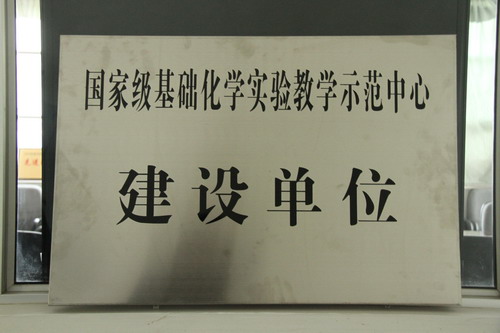 国家级基础化学实验教学示范中心
建设单位